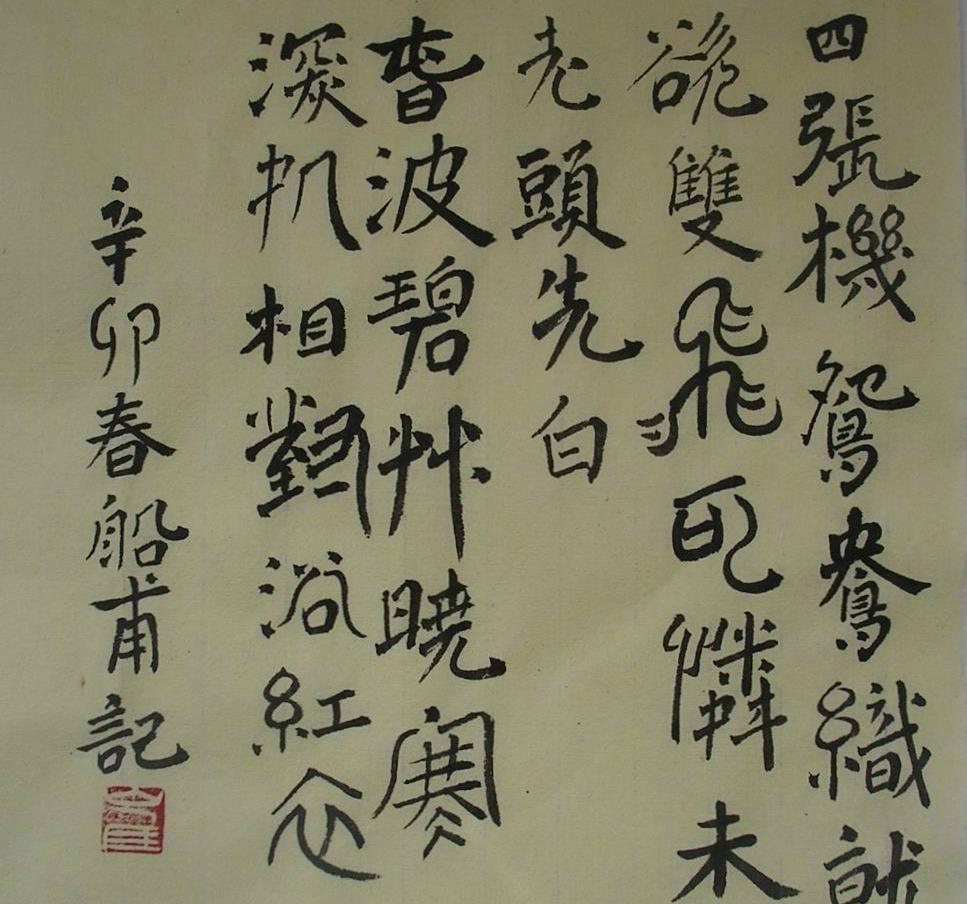 四張機鴛鴦織就
欲雙飛可憐未
老頭先白
春波碧艸曉寒
深処相對浴紅衣
辛卯春船甫記